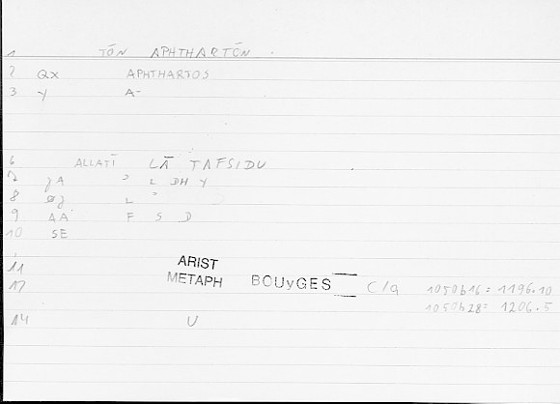 1 TŌN APHTHARTŌN.
2 Qx APHTHARTOS
3 y A-
6 ALLATĪ LĀ TAFSIDU
7 JA ʾ L DHY
8 L ʾ
9 AA F S D
10 SE
11 ARIST
METAPH BOUyGES
12 C/a 1050b16 = 1196.10
1050b28 = 1206.5
14 U